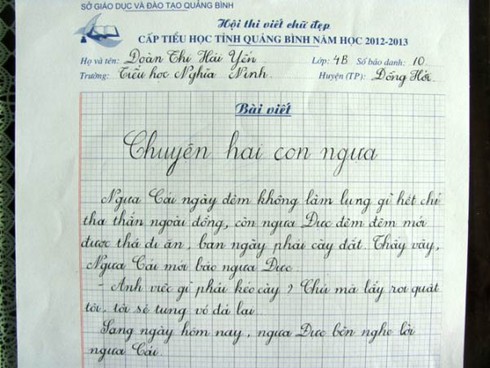 SỞ GIÁO DỤC VÀ ĐÀO TẠO QUẢNG BÌNH
Hội thi viết chữ đẹp
CẤP TIỂU HỌC TỈNH QUẢNG BÌNH NĂM HỌC 2012-2013
Họ và tên: Đoàn Thị Hải Yến Lớp: 4B Số báo danh: 10
Trường: Tiểu học Nghĩa Ninh Huyện (TP): Đồng Hới
Bài viết
Chuyện hai con ngựa
Ngựa Cái ngày đêm không làm lụng gì hết chỉ
tha thẩn ngoài đồng, còn ngựa Đực đêm đêm mới
được thả đi ăn, ban ngày phải cày đất. Thấy vậy,
Ngựa Cái mới bảo ngựa Đực
- Anh việc gì phải kéo cày ? Chủ mà lấy roi quất
tôi, tôi sẽ tung vó đá lại.
Sang ngày hôm nay, ngựa Đực bèn nghe lời
ngựa Cái.